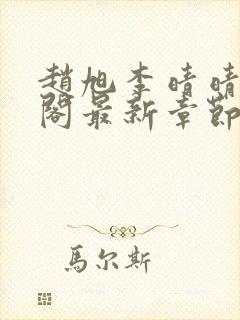 趙旭李晴晴
閣最新章節
馬尔斯